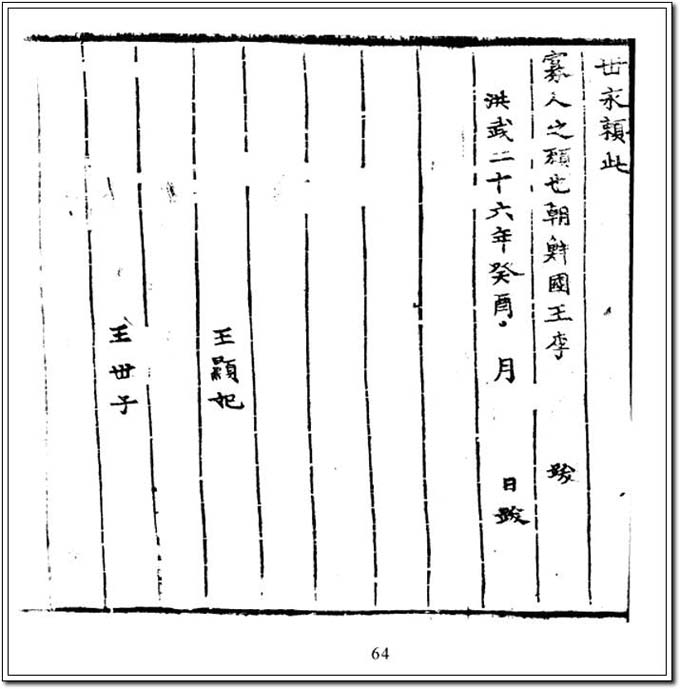 世永賴此
寡人之願也朝鮮國王李 跋
洪武二十六年癸酉 月 日跋
王顯妃
王世子
64